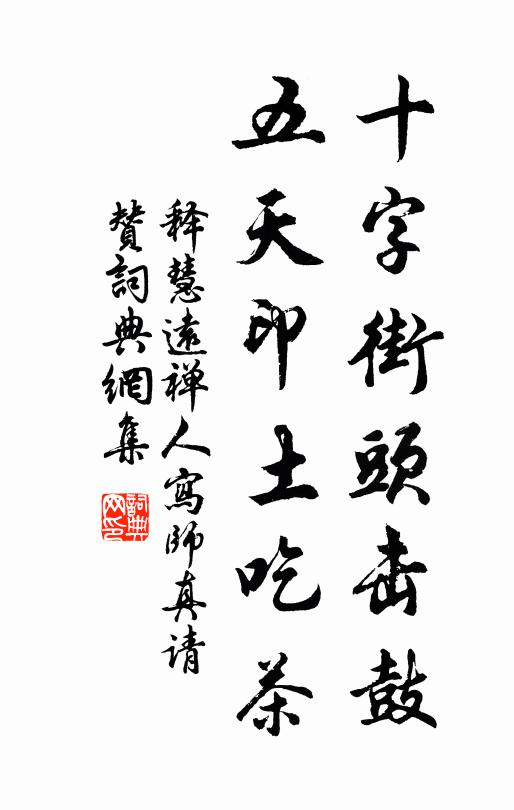 十字街頭击鼓
五天印土吃茶
释慧遠禅人寫師真请
贊詞典網集
詞典网印